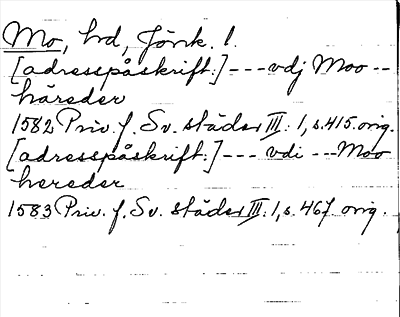 Mo, hd, Jönk. l.
[adresspåskrift:] --- vdj Moo --
häreder
1582 Priv. f. Sv. städer III: 1, s. 415. orig.
[adresspåskrift:] --- vdi --- Moo
hereder
1583 Priv. f. Sv. städer III: 1, s. 467. orig.